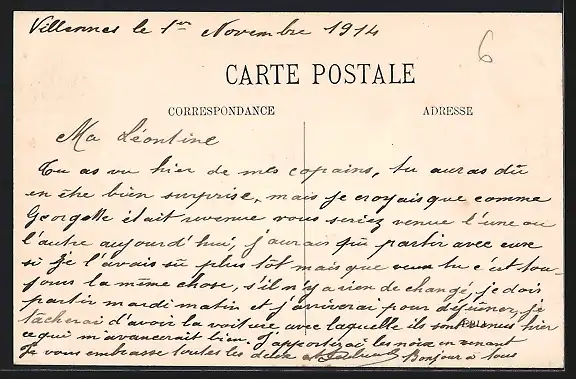 Villennes le 1er Novembre 1914
6
CARTE POSTALE
CORRESPONDANCE
ADRESSE
Ma Léontine
Tu as vu hier de mes copains, tu auras dû
en être bien surprise, mais je croyais que comme
Georgette était revenue vous seriez venue l'une ou
l'autre aujourd'hui, j'aurais pu partir avec eux
si je l'avais sû plus tôt mais que veux tu c'est tou-
jours la même chose, s'il n'y a rien de changé, je dois
partir mardi matin et j'arriverai pour déjeûner, je
tâcherai d'avoir la voiture avec laquelle ils sont venus hier
ce qui m'avancerait bien. J'apporterai les noix en venant
Je vous embrasse toutes les deux Bonjour à tous